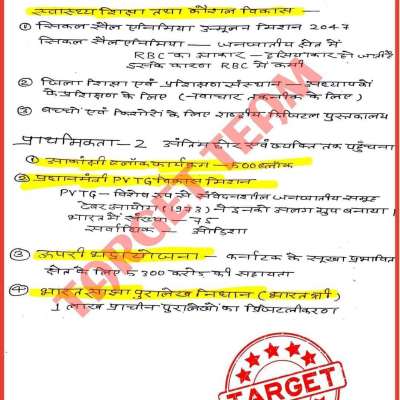 स्वास्थ्य शिक्षा तथा कौशल विकास —
① सिकल सैल एनिमिया उन्मूलन मिशन 2047
सिकल सैल एनिमिया — जनजातीय क्षेत्र में
RBC का आकार — हसियाकार हो जाती है
इसके कारण RBC में कमी
② जिला शिक्षा एवं प्रशिक्षण संस्थान — अध्यापकों
के प्रशिक्षण के लिए (नवाचार तकनीक के लिए)
③ बच्चों एवं किशोरों के लिए राष्ट्रीय डिजिटल पुस्तकालय
प्राथमिकता - 2 अंतिम छोर व व्यक्ति तक पहुँचना
① आकांक्षी ब्लॉक कार्यक्रम - 500 ब्लॉक
② प्रधानमंत्री PVTG विकास मिशन
PVTG - विशेष रूप से संवेदनशील जनजातीय समूह
ढेबर आयोग (1973) ने इनको अलग ग्रुप बनाया।
भारत में संख्या - 75
सर्वाधिक - ओडिशा
③ ऊपरी भद्रा योजना — कर्नाटक के सूखा प्रभावित
क्षेत्र के लिए 5300 करोड़ की सहायता
④ भारत साझा पुरालेख निधान (भारतश्री)
1 लाख प्राचीन पुरालेखों का डिजिटलीकरण
TARGET TEAM
TARGET